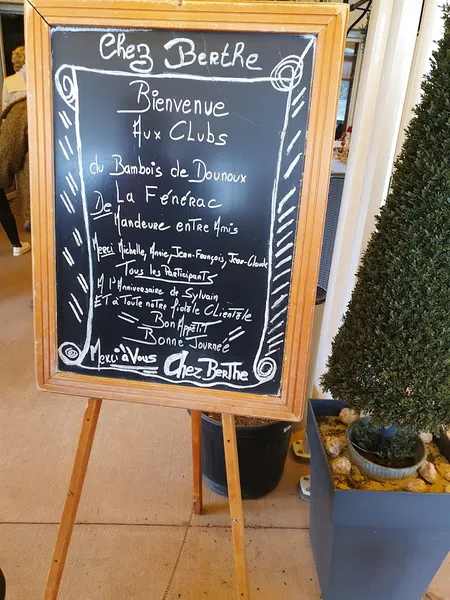 Chez Berthe
Bienvenue
Aux Clubs
du Bambois de Dounoux
De La Fénérac
Mandeure entre Amis
Merci Michelle, Annie, Jean-François, Jean-Claude
Tous les Participants
A l'Anniversaire de Sylvain
Et à toute notre fidèle Clientèle
Bon Appétit
Bonne Journée
Merci à Vous Chez Berthe